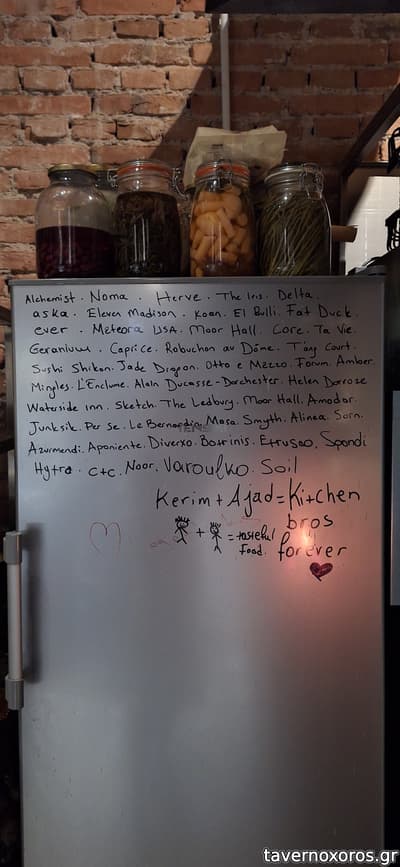 Alchemist. Noma. Herve. The Iris. Delta.
aska. Eleven Madison. Koan. El Bulli. Fat Duck.
ever. Meteora USA. Moor Hall. Core. Ta Vie.
Geranium. Caprice. Robuchon au Dôme. T'ang Court.
Sushi Shikon. Jade Dragon. Otto e Mezzo. Forum. Amber.
Mingles. L'Enclume. Alain Ducasse-Dorchester. Helen Darroze
Waterside inn. Sketch. The Ledbury. Moor Hall. Amador.
Junksik. Per Se. Le Bernardin. Masa. Smyth. Alinea. Sorn.
Azurmendi. Aponiente. Diverxo. Botrinis. Etrusco. Spondi
Hytra. C+C. Noor. Varoulko. Soil
Kerim + Ajad = Kitchen
bros
+ = tasteful
Food. forever
tavernoxoros.gr